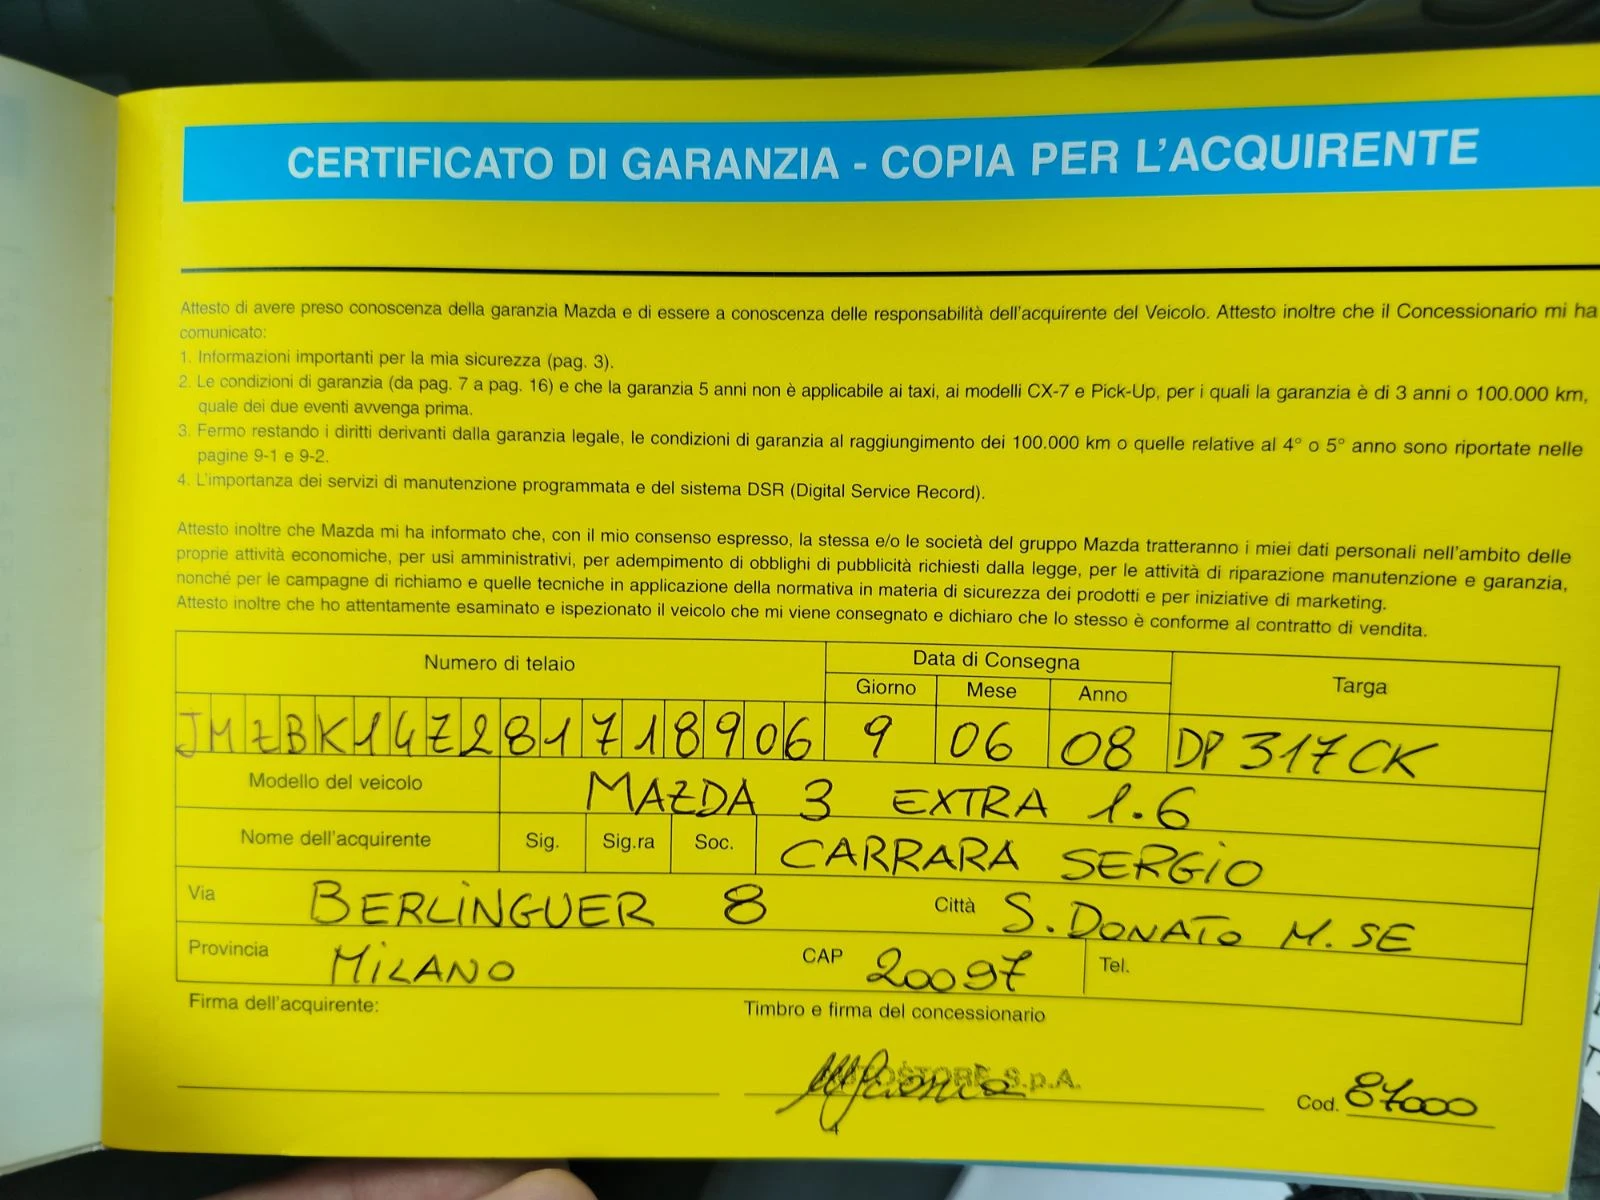 CERTIFICATO DI GARANZIA - COPIA PER L'ACQUIRENTE
Attesto di avere preso conoscenza della garanzia Mazda e di essere a conoscenza delle responsabilità dell'acquirente del Veicolo. Attesto inoltre che il Concessionario mi ha
comunicato:
1. Informazioni importanti per la mia sicurezza (pag. 3).
2. Le condizioni di garanzia (da pag. 7 a pag. 16) e che la garanzia 5 anni non è applicabile ai taxi, ai modelli CX-7 e Pick-Up, per i quali la garanzia è di 3 anni o 100.000 km,
quale dei due eventi avvenga prima.
3. Fermo restando i diritti derivanti dalla garanzia legale, le condizioni di garanzia al raggiungimento dei 100.000 km o quelle relative al 4° o 5° anno sono riportate nelle
pagine 9-1 e 9-2.
4. L'importanza dei servizi di manutenzione programmata e del sistema DSR (Digital Service Record).
Attesto inoltre che Mazda mi ha informato che, con il mio consenso espresso, la stessa e/o le società del gruppo Mazda tratteranno i miei dati personali nell'ambito delle
proprie attività economiche, per usi amministrativi, per adempimento di obblighi di pubblicità richiesti dalla legge, per le attività di riparazione manutenzione e garanzia,
nonché per le campagne di richiamo e quelle tecniche in applicazione della normativa in materia di sicurezza dei prodotti e per iniziative di marketing.
Attesto inoltre che ho attentamente esaminato e ispezionato il veicolo che mi viene consegnato e dichiaro che lo stesso è conforme al contratto di vendita.
Numero di telaio Data di Consegna Targa
Giorno Mese Anno
JMZBK14Z281718906 9 06 08 DP 317CK
Modello del veicolo MAZDA 3 EXTRA 1.6
Nome dell'acquirente Sig. Sig.ra Soc. CARRARA SERGIO
Via BERLINGUER 8 Città S. DONATO M.SE
Provincia MILANO CAP 20097 Tel.
Firma dell'acquirente: Timbro e firma del concessionario
AUTOSTORE S.p.A.
Cod. 87000
4